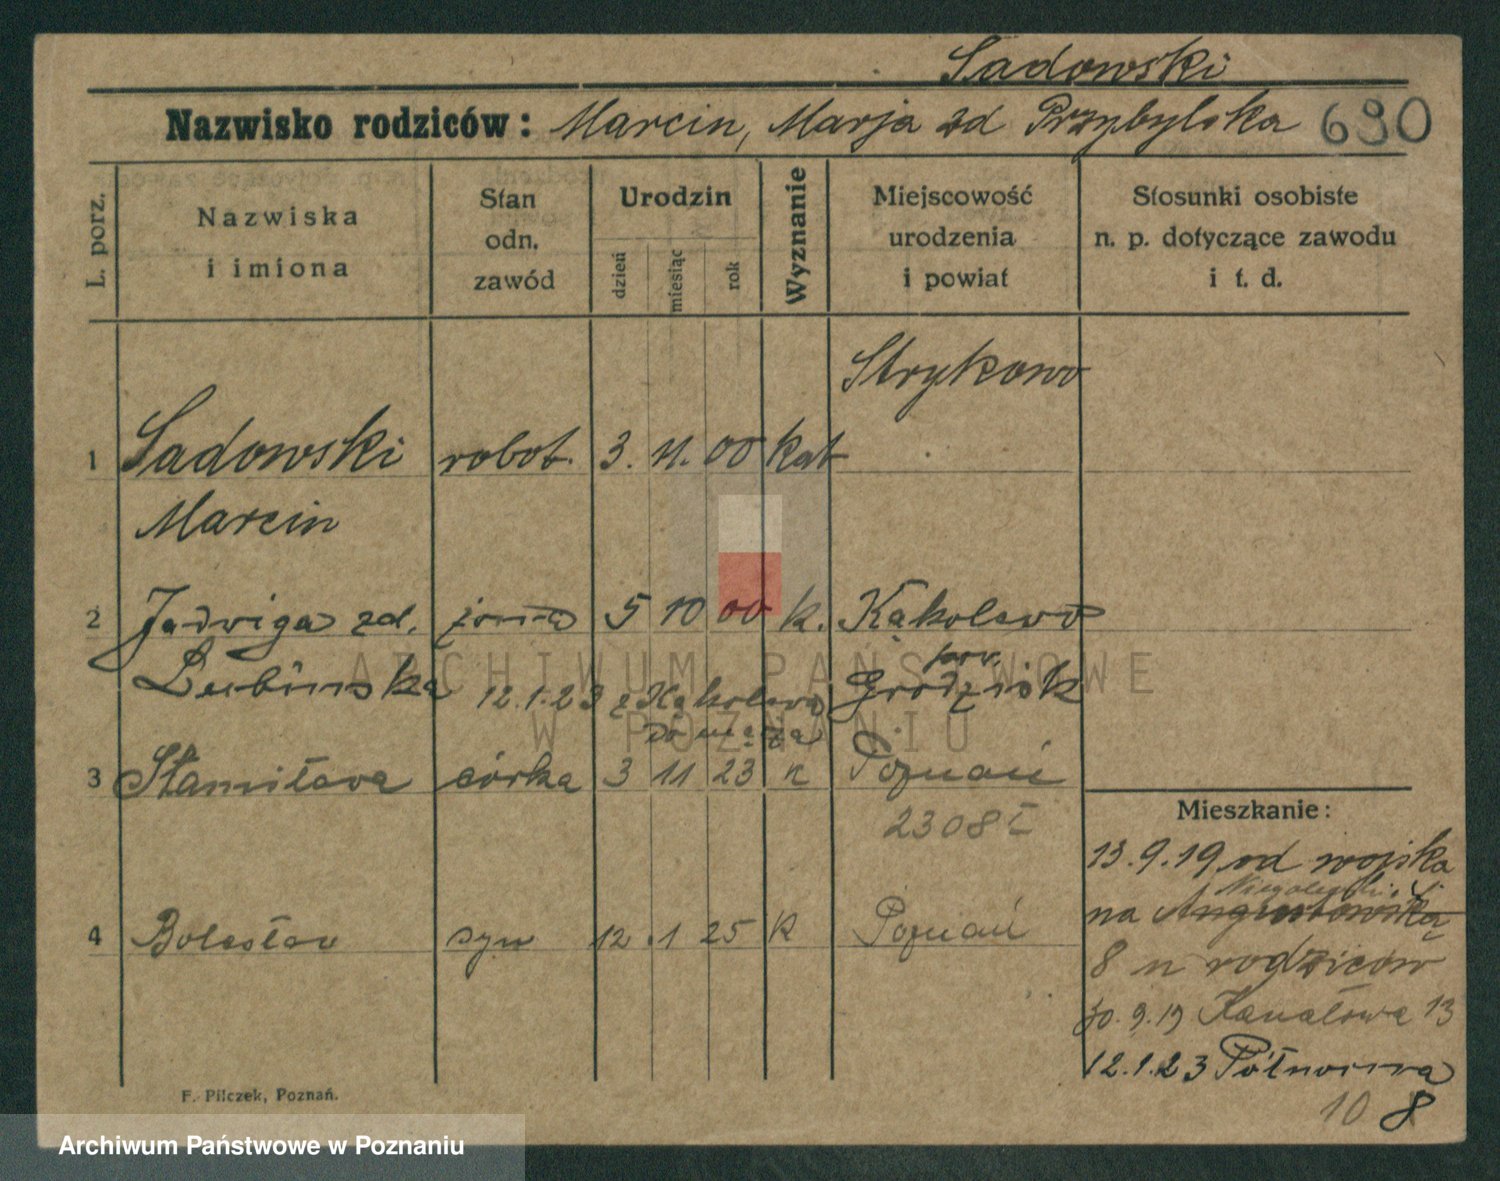 Sadowski
Nazwisko rodziców: Marcin, Marja zd Przybylska 690
L. porz.
Nazwiska
i imiona
Stan
odn.
zawód
Urodzin
dzień
miesiąc
rok
Wyznanie
Miejscowość
urodzenia
i powiat
Stosunki osobiste
n. p. dotyczące zawodu
i t. d.
Strykowo
1 Sadowski robot. 3. 11. 00 kat
Marcin
2 Jadwiga zd. żona 5 10 00 k. Kąkolewo
pow.
Lubińska 12.1.23 z Kąkolewa Grodzisk
do męża
3 Stanisława córka 3 11 23 k Poznań
2308
Mieszkanie:
13.9.19 od wojska
Niegolewskich
na Augustowską
4 Bolesław syn 12 .1 25 k Poznań
8 u rodziców
30.9.19 Kanałowa 13
12.1.23 Półwiejska
10 8
F. Pilczek, Poznań.
ARCHIWUM PAŃSTWOWE
W POZNANIU
Archiwum Państwowe w Poznaniu